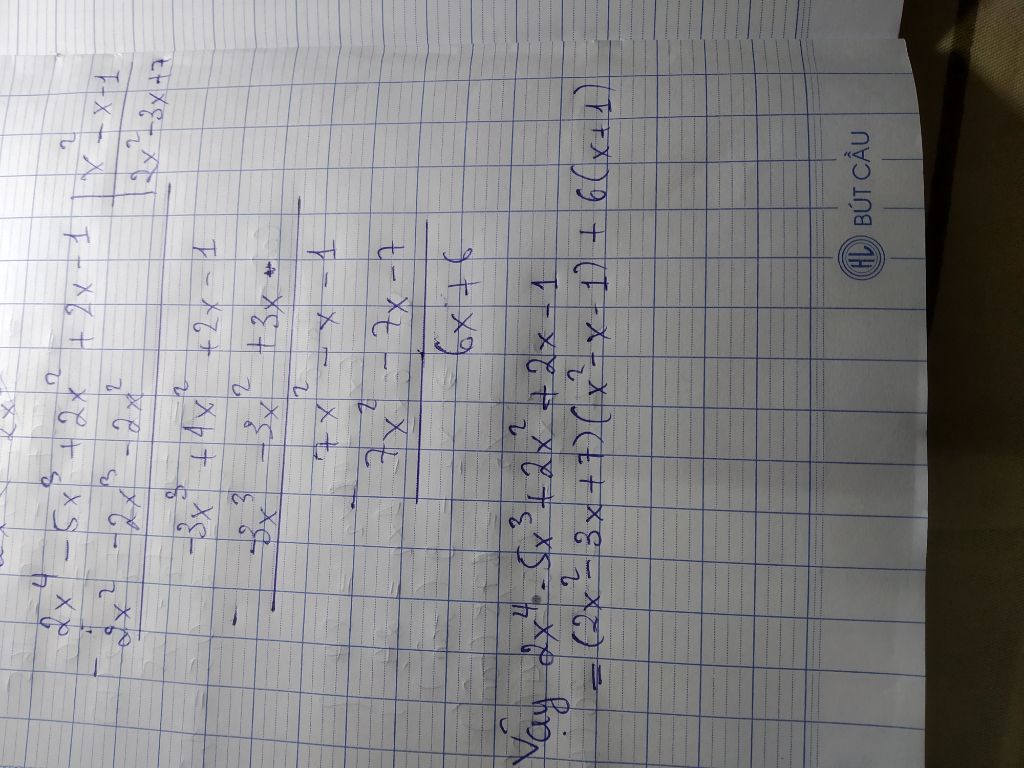 2x⁴ - 5x³ + 2x² + 2x - 1 | x² - x - 1
- 2x² - 2x³ - 2x² | 2x² - 3x + 7
-3x³ + 4x² + 2x - 1
- -3x³ - 3x² + 3x
7x² - x - 1
- 7x² - 7x - 7
6x + 6
Vậy 2x⁴ - 5x³ + 2x² + 2x - 1
= (2x² - 3x + 7)(x² - x - 1) + 6(x + 1)
HL BÚT CẦU